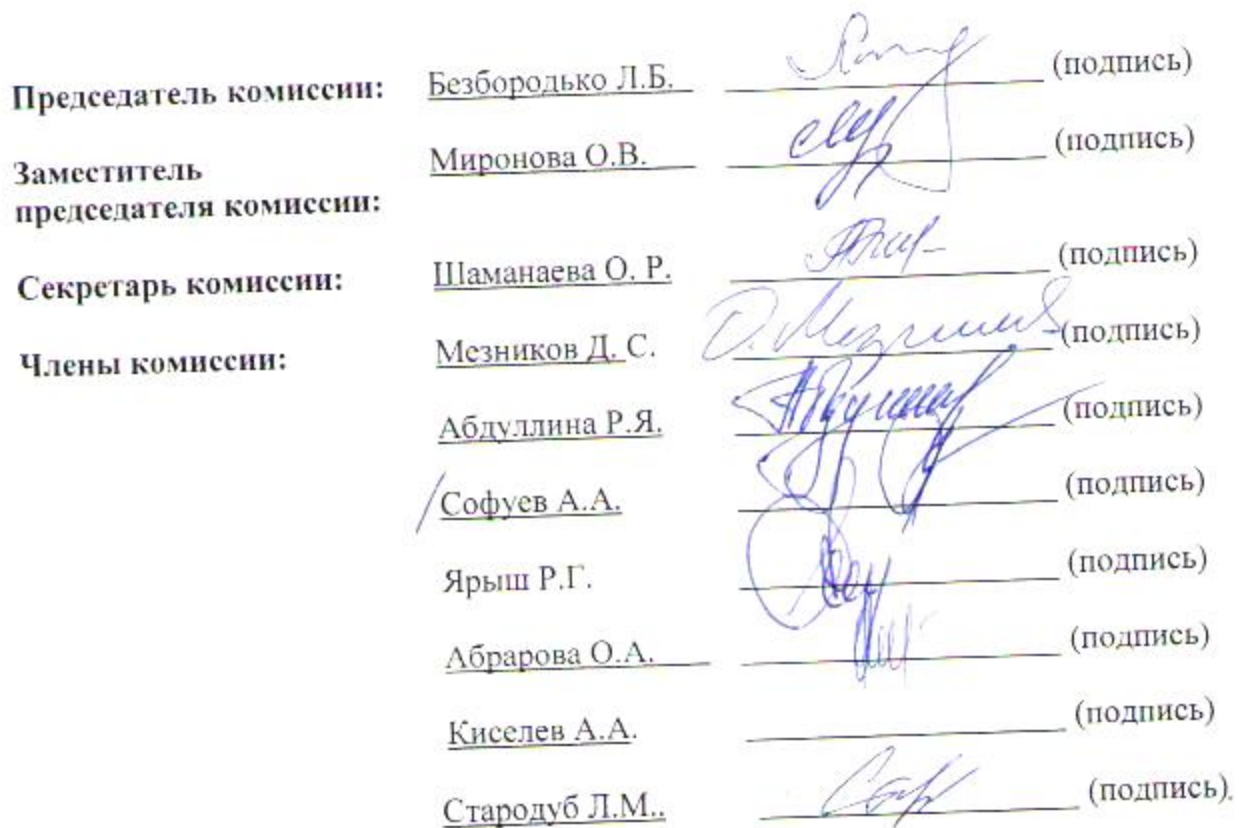 Председатель комиссии: Безбородько Л.Б. (подпись)
Заместитель Миронова О.В. (подпись)
председателя комиссии:
Секретарь комиссии: Шаманаева О. Р. (подпись)
Члены комиссии: Мезников Д. С. (подпись)
Абдуллина Р.Я. (подпись)
Софуев А.А. (подпись)
Ярыш Р.Г. (подпись)
Абрарова О.А. (подпись)
Киселев А.А. (подпись)
Стародуб Л.М.. (подпись).